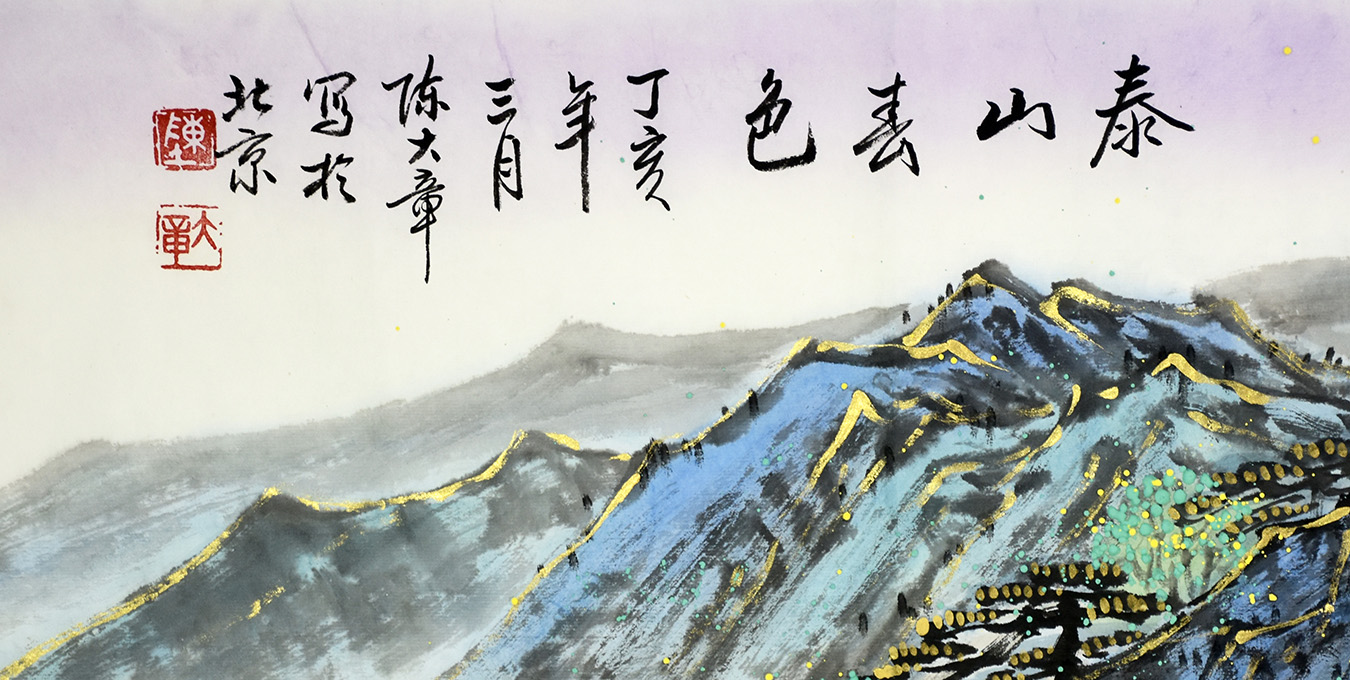 泰山春色
丁亥
年
三月
陈大章
写於
北京
陳
大章